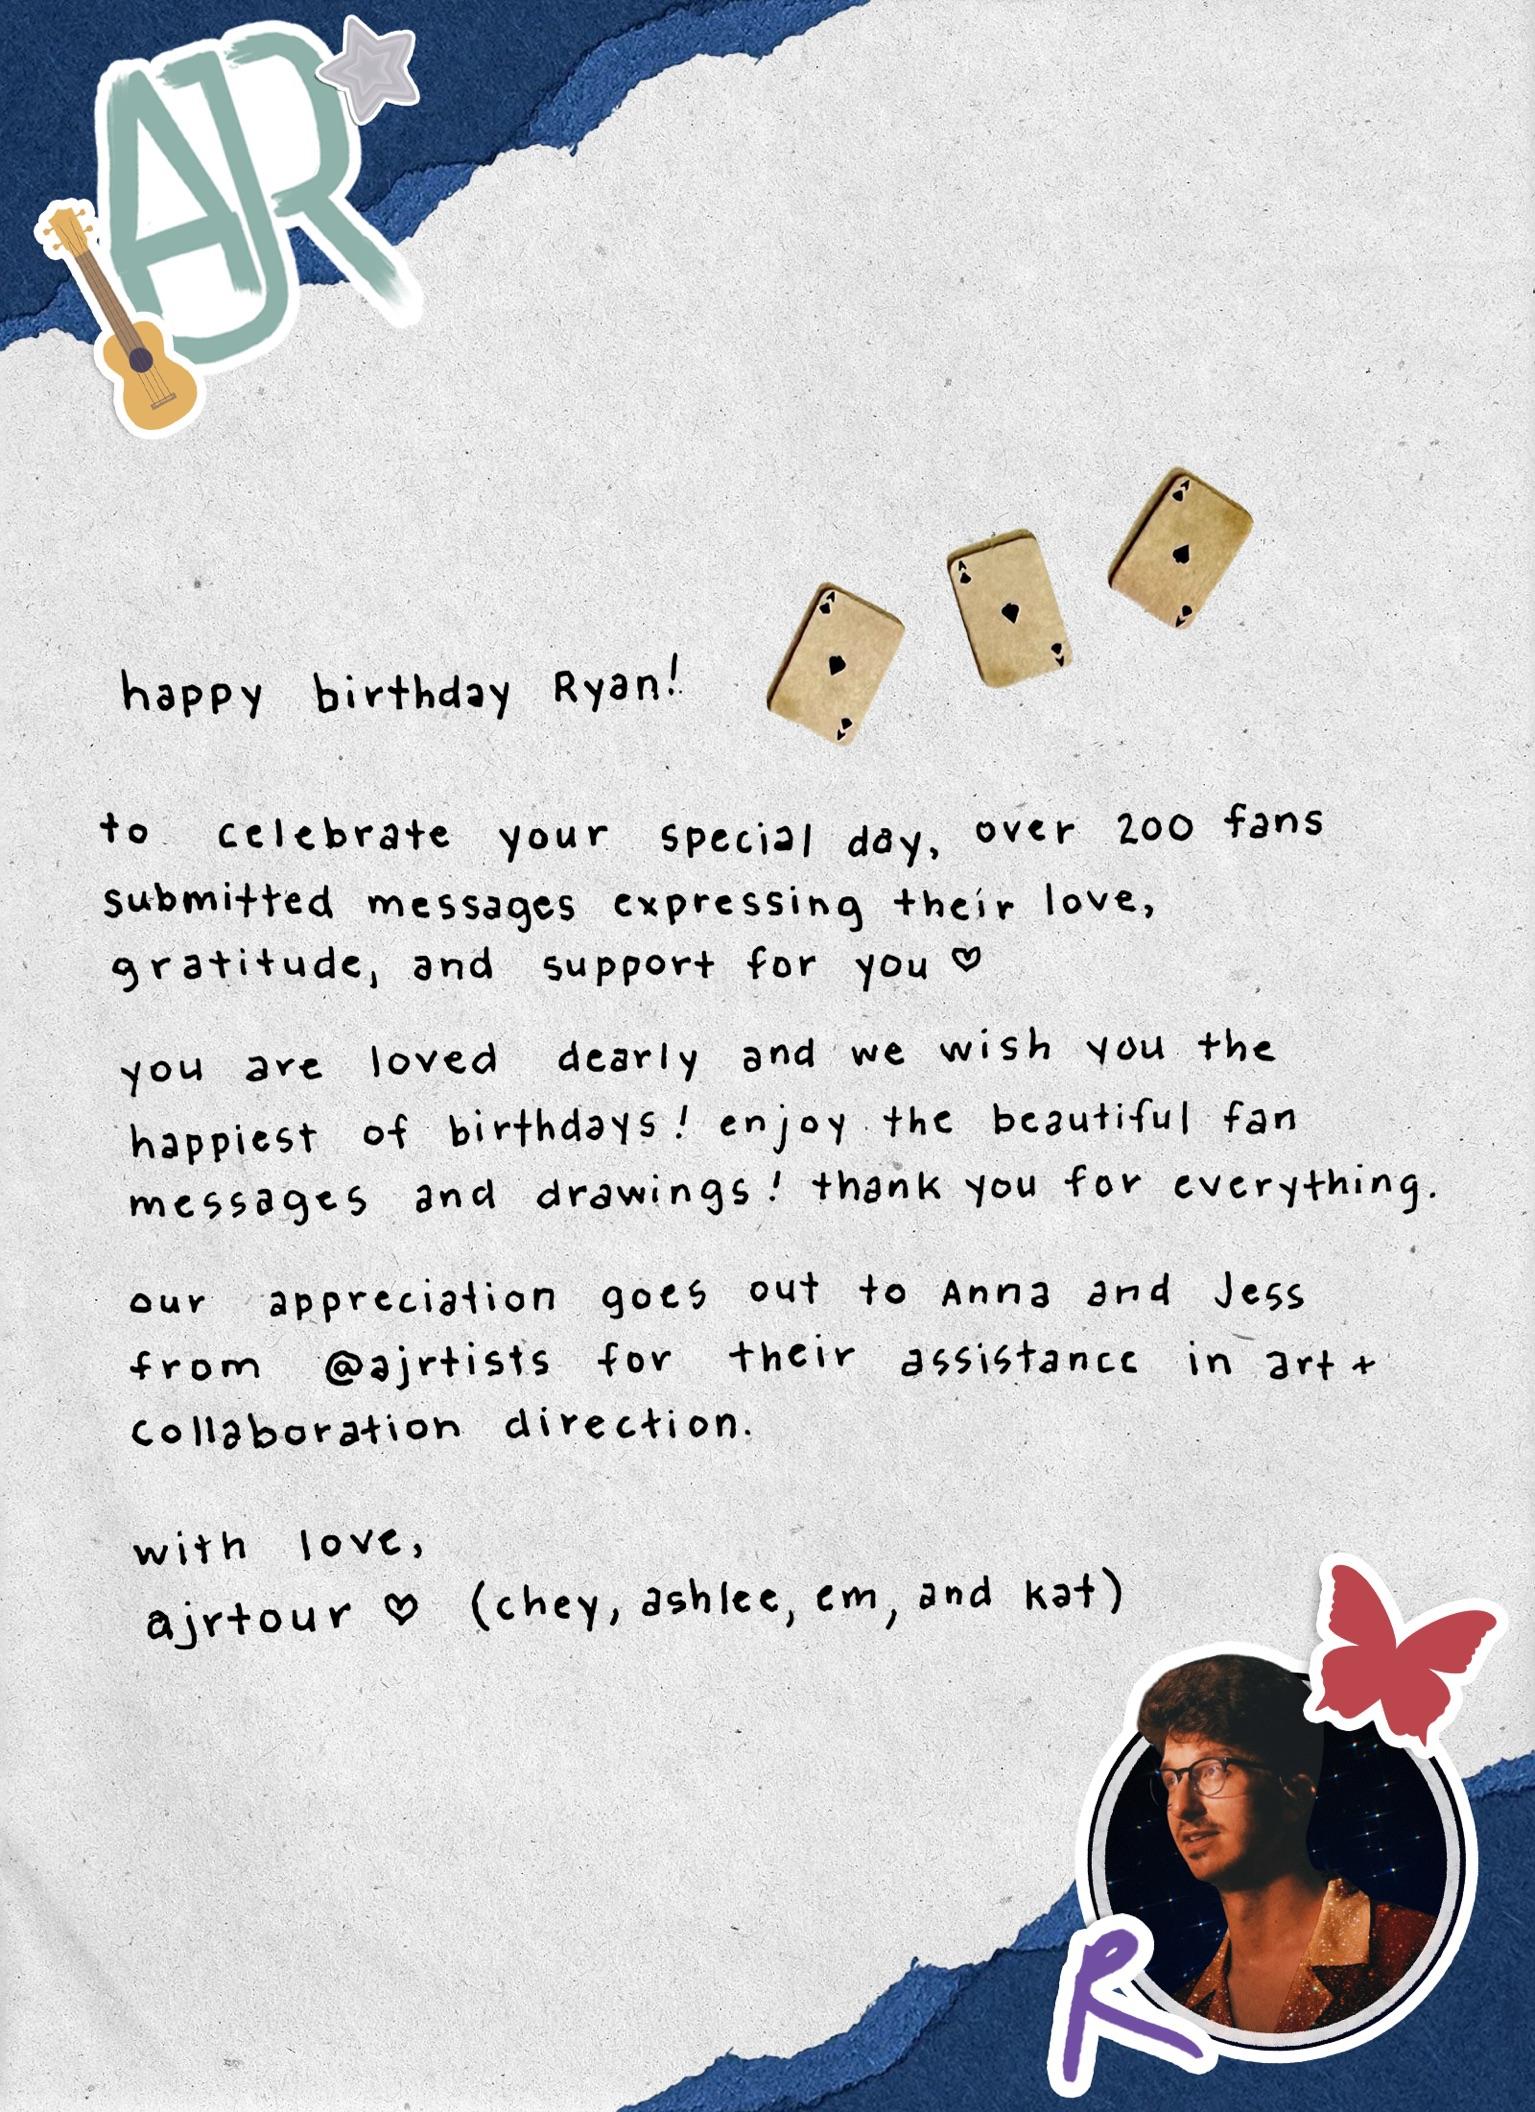 AJR
A
A
A
A
A
A
happy birthday Ryan!
to celebrate your special day, over 200 fans
submitted messages expressing their love,
gratitude, and support for you ♡
you are loved dearly and we wish you the
happiest of birthdays! enjoy the beautiful fan
messages and drawings! thank you for everything.
our appreciation goes out to Anna and Jess
from @ajrtists for their assistance in art +
collaboration direction.
with love,
ajrtour ♡ (chey, ashlee, em, and kat)
R